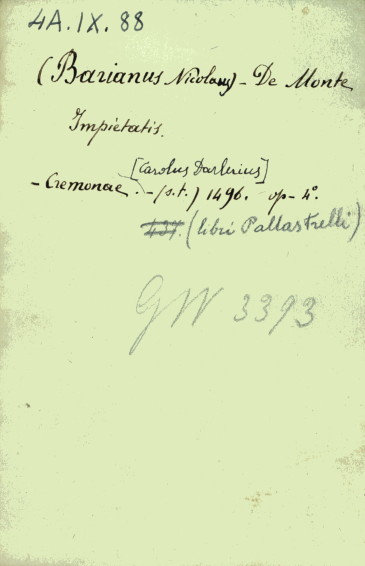 4A.IX.88
(Barianus Nicolaus) - De Monte
Impietatis.
[Carolus Darlerius]
- Cremonae. - (s.t.) 1496. op - 4°.
437. (libri Pallastrelli)
GW 3393